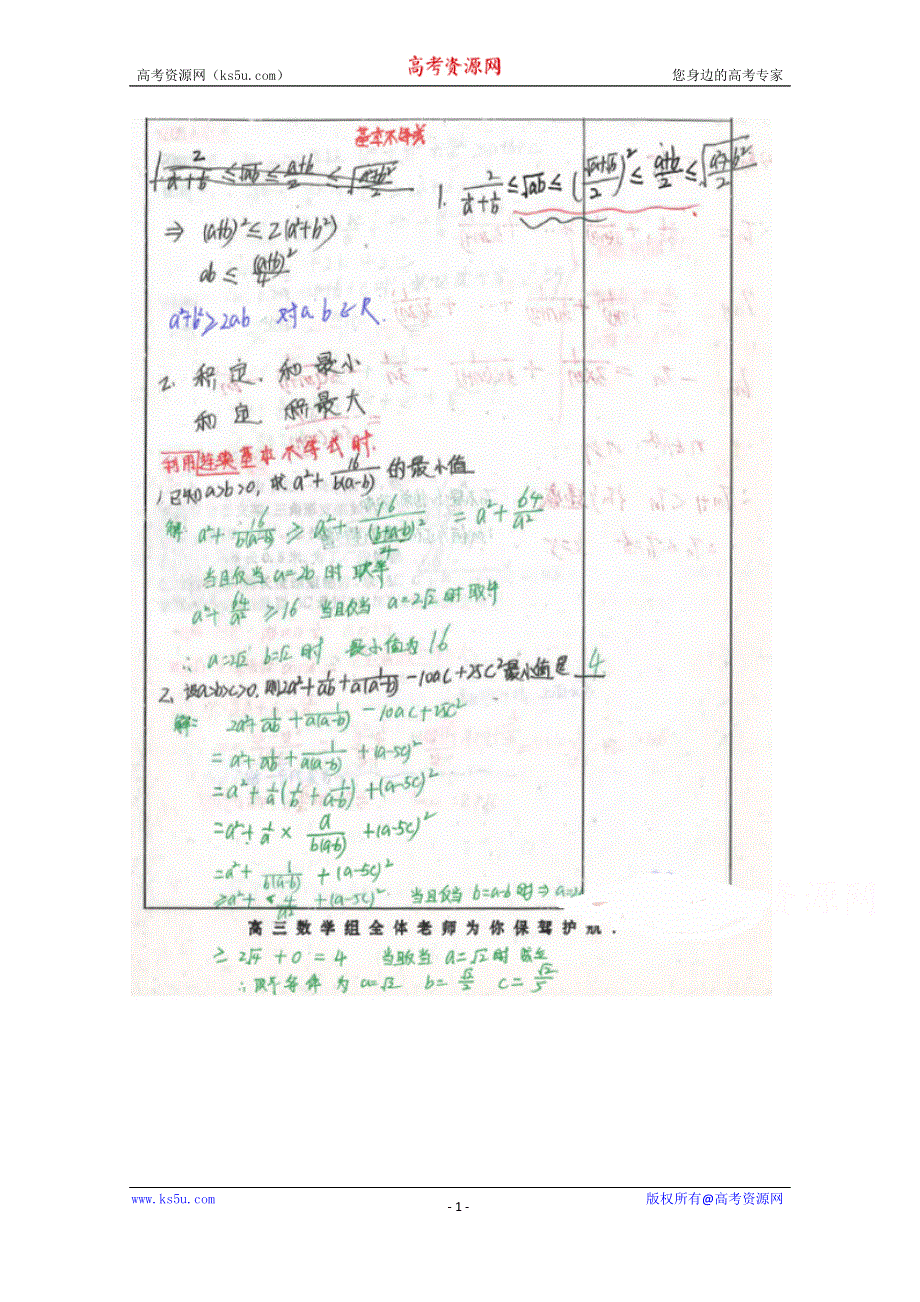 高考资源网（ks5u.com）
高考资源网
您身边的高考专家
基本不等式
2/(1/a+1/b) ≤ √ab ≤ (a+b)/2 ≤ √((a²+b²)/2)
1. 2/(1/a+1/b) ≤ √ab ≤ ((√a+√b)/2)² ≤ (a+b)/2 ≤ √((a²+b²)/2)
⇒ (a+b)² ≤ 2(a²+b²)
ab ≤ (a+b)²/4
a²+b² ≥ 2ab 对a b ∈ R.
2. 积定、和最小
和定 积最大
利用连续基本不等式时.
1.已知a>b>0,求a²+16/(b(a-b))的最小值
解 a²+16/(b(a-b)) ≥ a²+16/((b+a-b)²/4) = a²+64/a²
当且仅当a=2b时取等
a²+64/a² ≥16 当且仅当 a=2√2时取等
∴ a=2√2 b=√2 时 最小值为16
2. 设a>b>c>0,则2a²+1/ab+1/(a(a-b))-10ac+25c²最小值是 4
解: 2a²+1/ab+1/(a(a-b))-10ac+25c²
=a²+1/ab+1/(a(a-b))+(a-5c)²
=a²+1/a(1/b+1/(a-b))+(a-5c)²
=a²+1/a×a/(b(a-b))+(a-5c)²
=a²+1/(b(a-b))+(a-5c)²
≥a²+4/a²+(a-5c)² 当且仅当 b=a-b时⇒
高三数学组全体老师为你保驾护航.
≥ 2√4+0=4 当且仅当 a=√2时
∴取等条件为a=√2 b=√2/2 c=√2/5
www.ks5u.com
- 1 -
版权所有@高考资源网